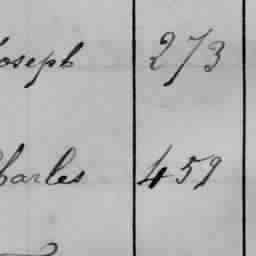 Joseph 273
Charles 459